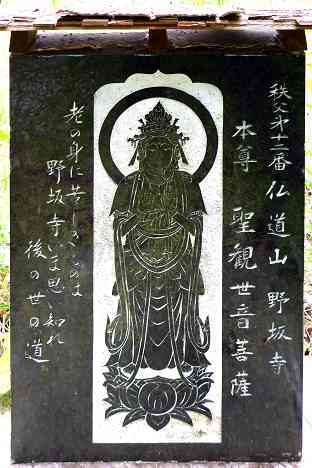 秩父第十二番 仏道山 野坂寺
本尊 聖観世音菩薩
老の身に苦しきものは
野坂寺いま思ひ知れ
後の世の道